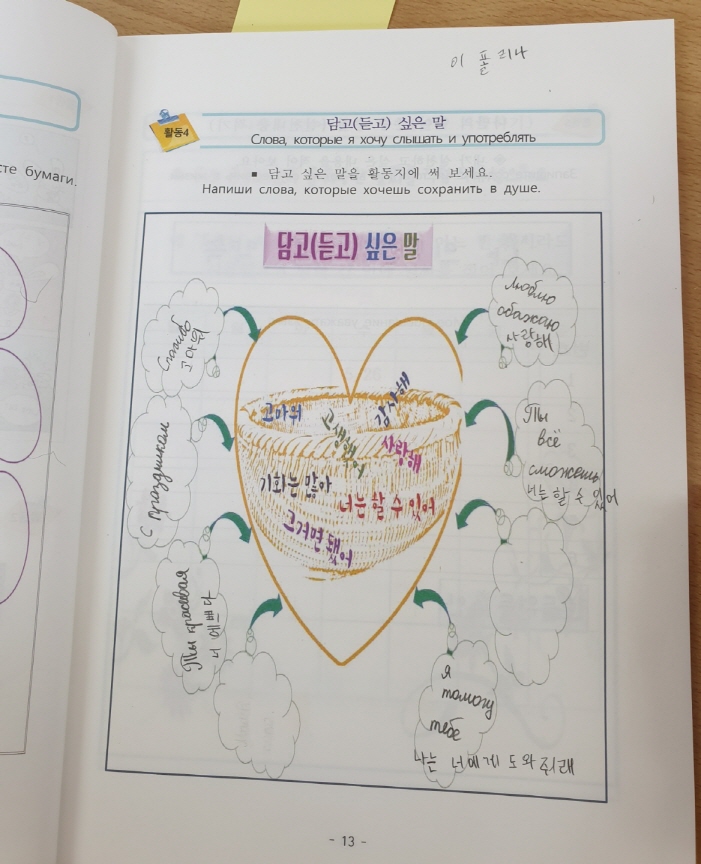 이 폴리나
활동4
담고(듣고) 싶은 말
Слова, которые я хочу слышать и употреблять
сте бумаги.
▪ 담고 싶은 말을 활동지에 써 보세요.
Напиши слова, которые хочешь сохранить в душе.
담고(듣고) 싶은 말
Спасибо
고마워
Люблю
обажаю
사랑해
고마워
고생했어
감사해
사랑해
기회는 많아
너는 할 수 있어
그거면 됐어
С праздником
Ты
всё
сможешь
너는 할 수 있어
Ты красивая
너 예쁘다
Я
помогу
тебе
나는 너에게 도와 줘래
- 13 -